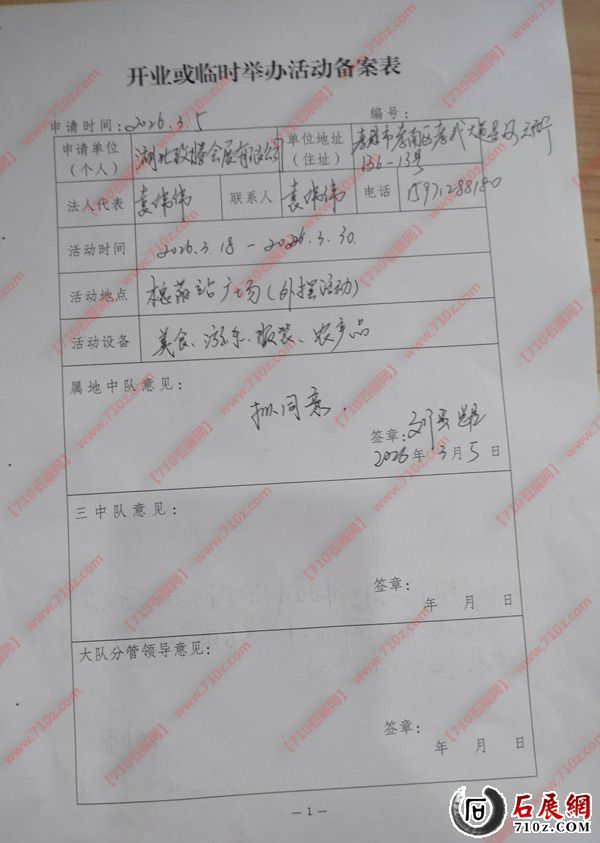 开业或临时举办活动备案表
申请时间：2026.3.5
编号：
申请单位（个人）
湖北玫瑰会展有限公司
单位地址（住址）
136-13号
法人代表
袁伟伟
联系人
袁伟伟
电话
15971288180
活动时间
2026.3.18-2026.3.30.
活动地点
槐荫站广场(外摆活动)
活动设备
美食、游乐、服装、农产品
属地中队意见：
拟同意.
签章：
2026年3月5日
三中队意见：
签章：
年 月 日
大队分管领导意见：
签章：
年 月 日
— 1 —
【710石展网】
www.710z.com
石展網
710z.com